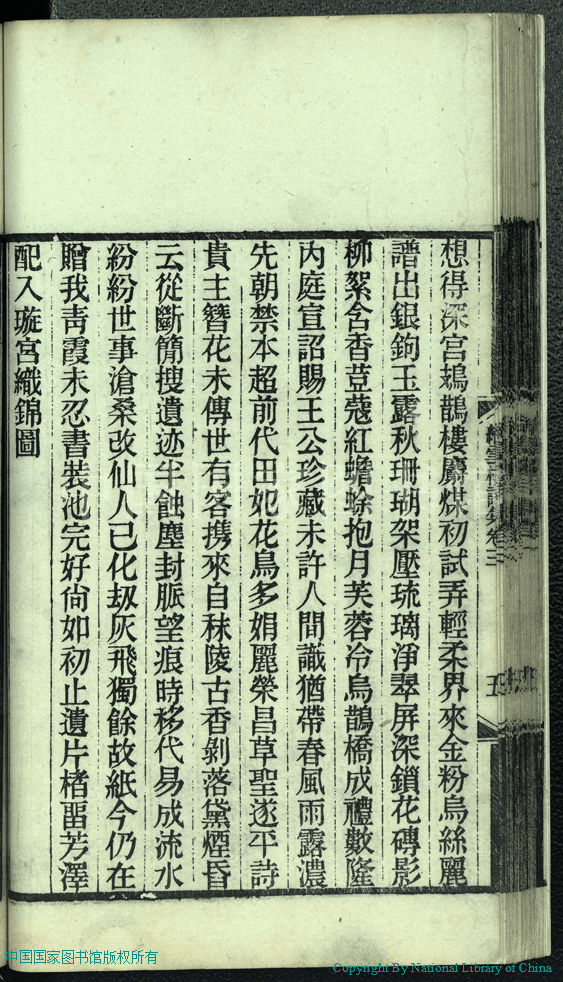 想得深宮鳷鵲樓麝煤初試弄輕柔界來金粉烏絲麗
譜出銀鉤玉露秋珊瑚架壓琉璃淨翠屏深鎖花磚影
柳絮含香荳蔻紅蟾蜍抱月芙蓉冷烏鵲橋成禮數隆
內庭宣詔賜王公珍藏未許人間識猶帶春風雨露濃
先朝禁本超前代田妃花鳥多娟麗榮昌草聖遂平詩
貴主簪花未傳世有客携來自秣陵古香剝落黛煙昏
云從斷簡搜遺迹半蝕塵封脈望痕時移代易成流水
紛紛世事滄桑改仙人已化刼灰飛獨餘故紙今仍在
贈我靑霞未忍書裝池完好尙如初止遺片楮畱芳澤
配入璇宮織錦圖
卷三
五
中国国家图书馆版权所有
Copyright By National Library of China